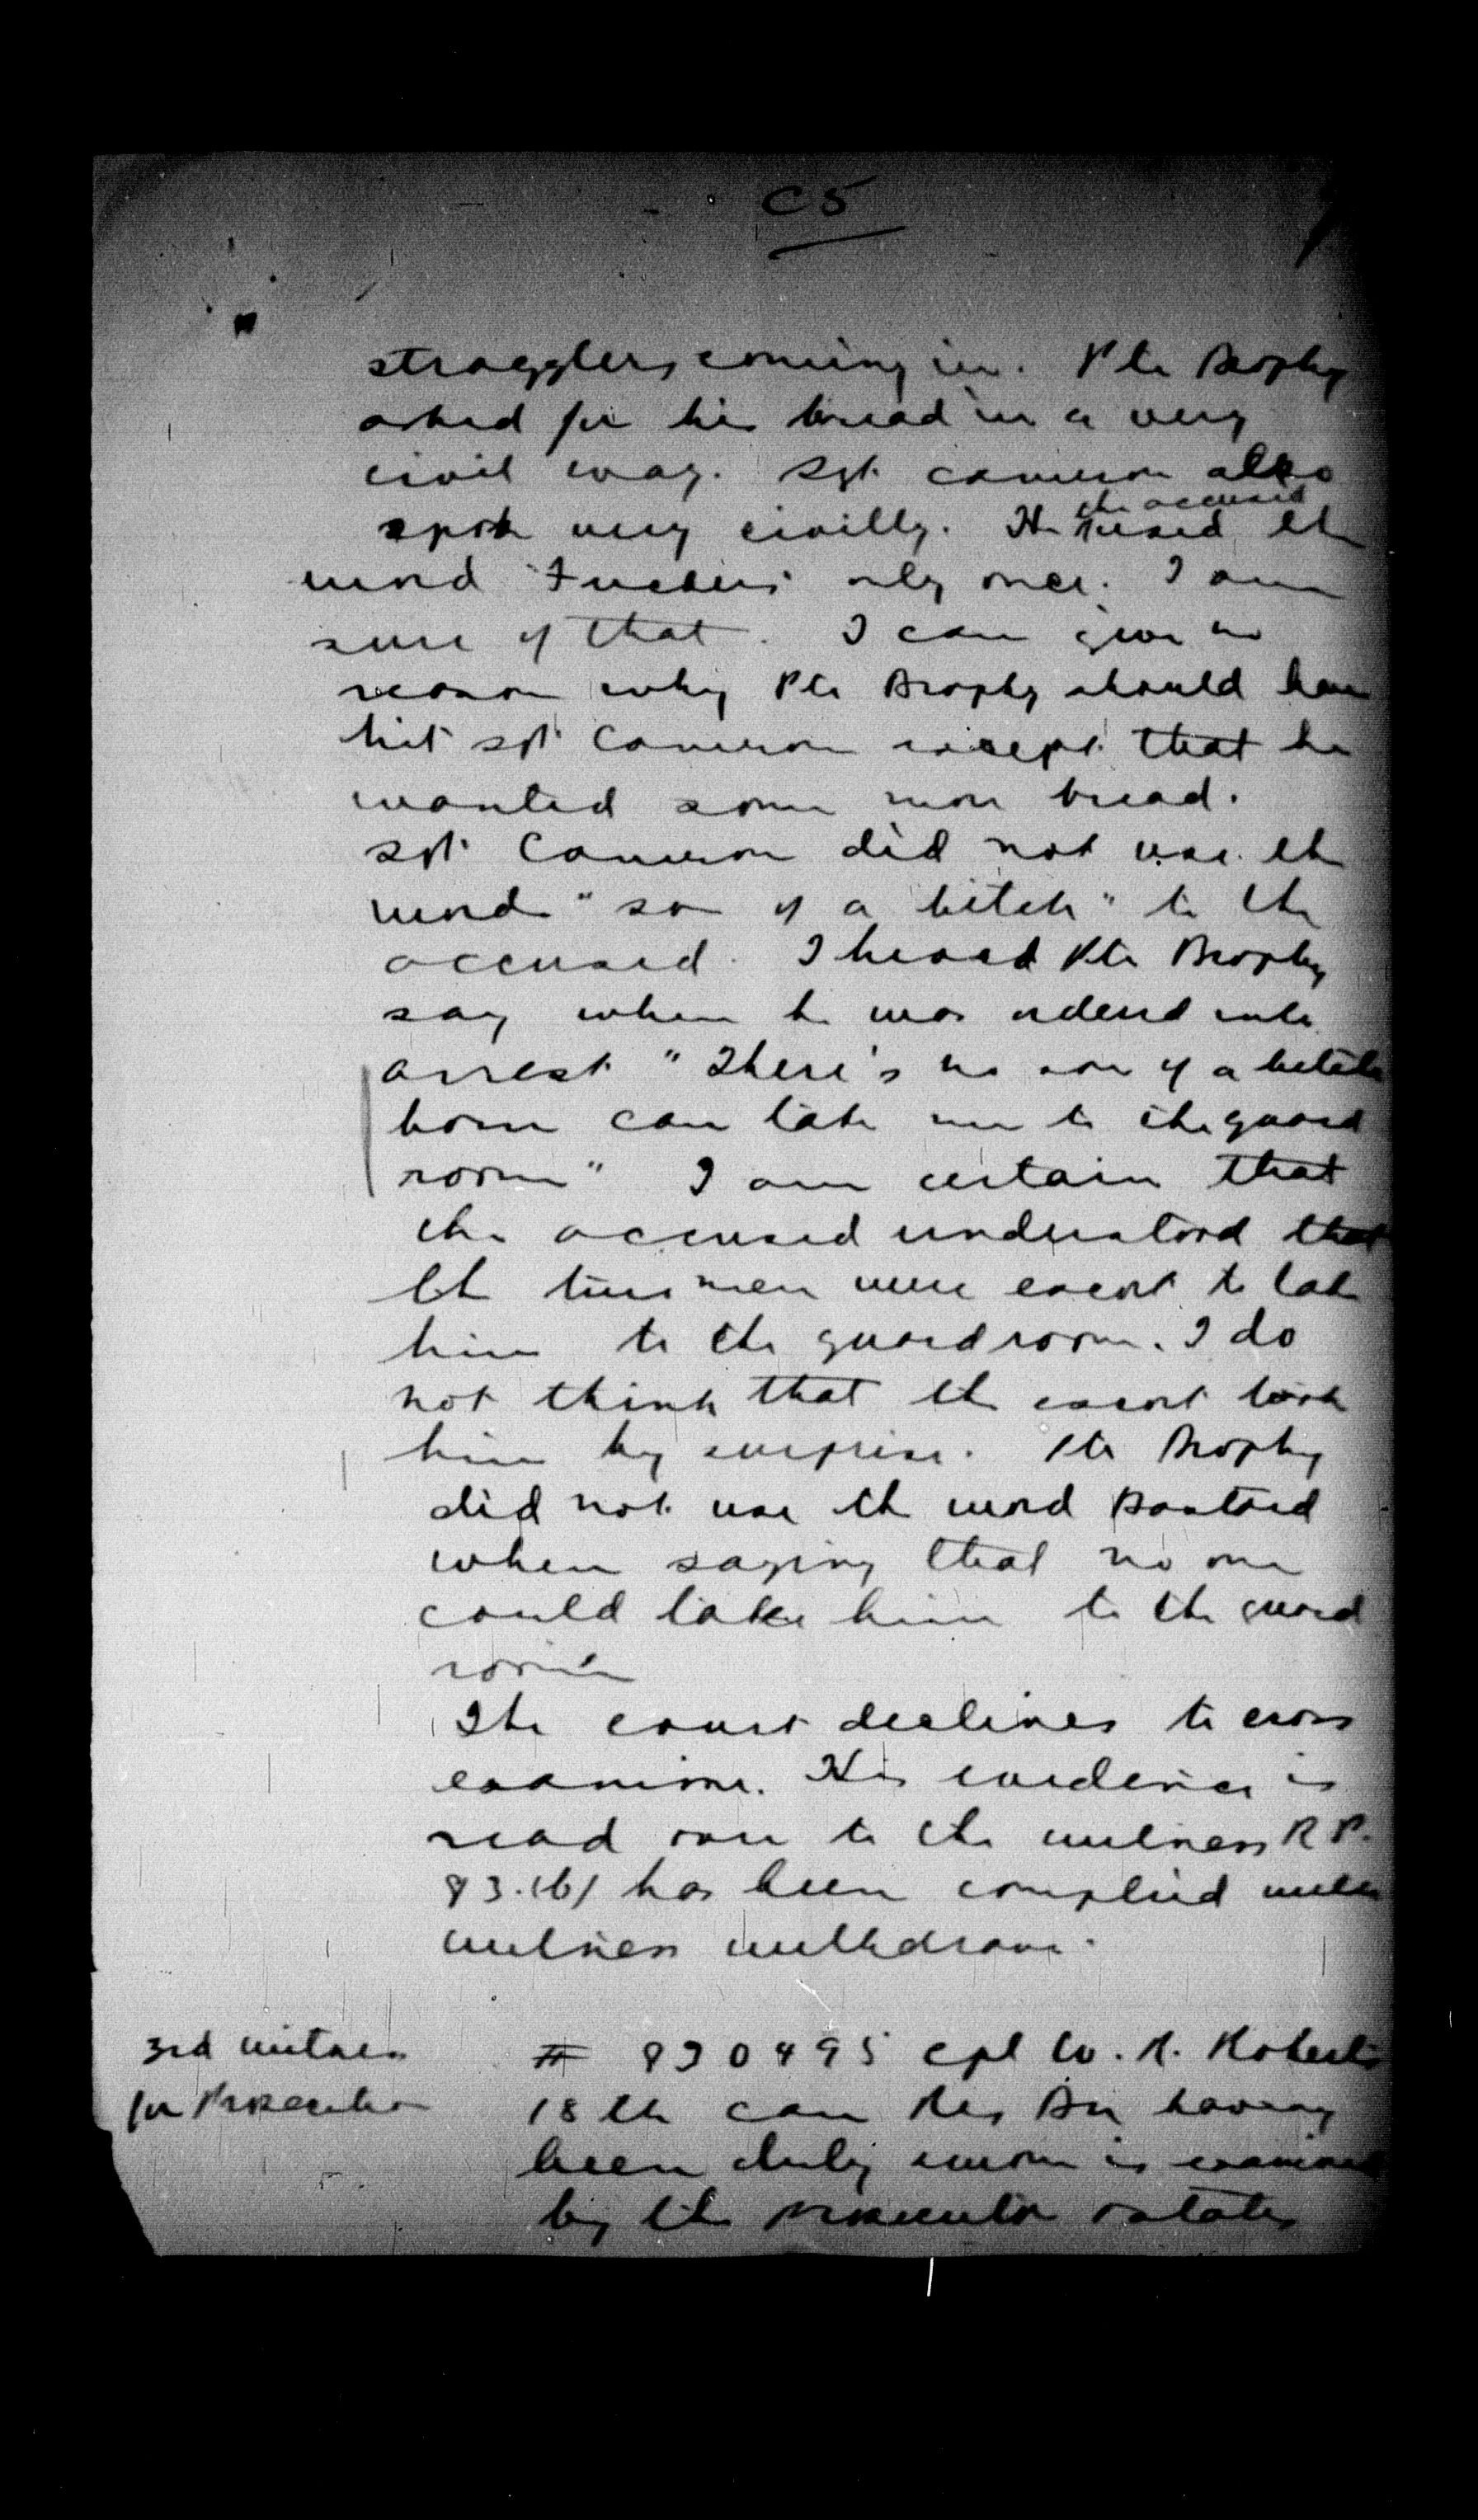 C5
stragglers coming in. Pte Brophy
asked for his bread in a very
civil way. Sgt. Cameron also
the accused
spoke very civilly. He used the
word "Fucking" only once. I am
sure of that. I can give no
reason why Pte Brophy should have
hit Sgt Cameron except that he
wanted some more bread.
Sgt Cameron did not use the
words "son of a bitch" to the
accused. I heard Pte Brophy
say when he was ordered into
arrest "There's no son of a bitch
born can take me to the guard
room" I am certain that
the accused understood that
the two men were escort to take
him to the guardroom. I do
not think that the escort took
him by surprise. Pte Brophy
did not use the word Bastard
when saying that no one
could take him to the guard
room
The court declines to cross
examine. His evidence is
read over to the witness R.P.
83.(b) has been complied with
witness withdraws.
3rd witness
for Prosecution
# 830495 Cpl W. R. Roberts
18th Can Res Bn having
been duly sworn is examined
by the Prosecutor & states